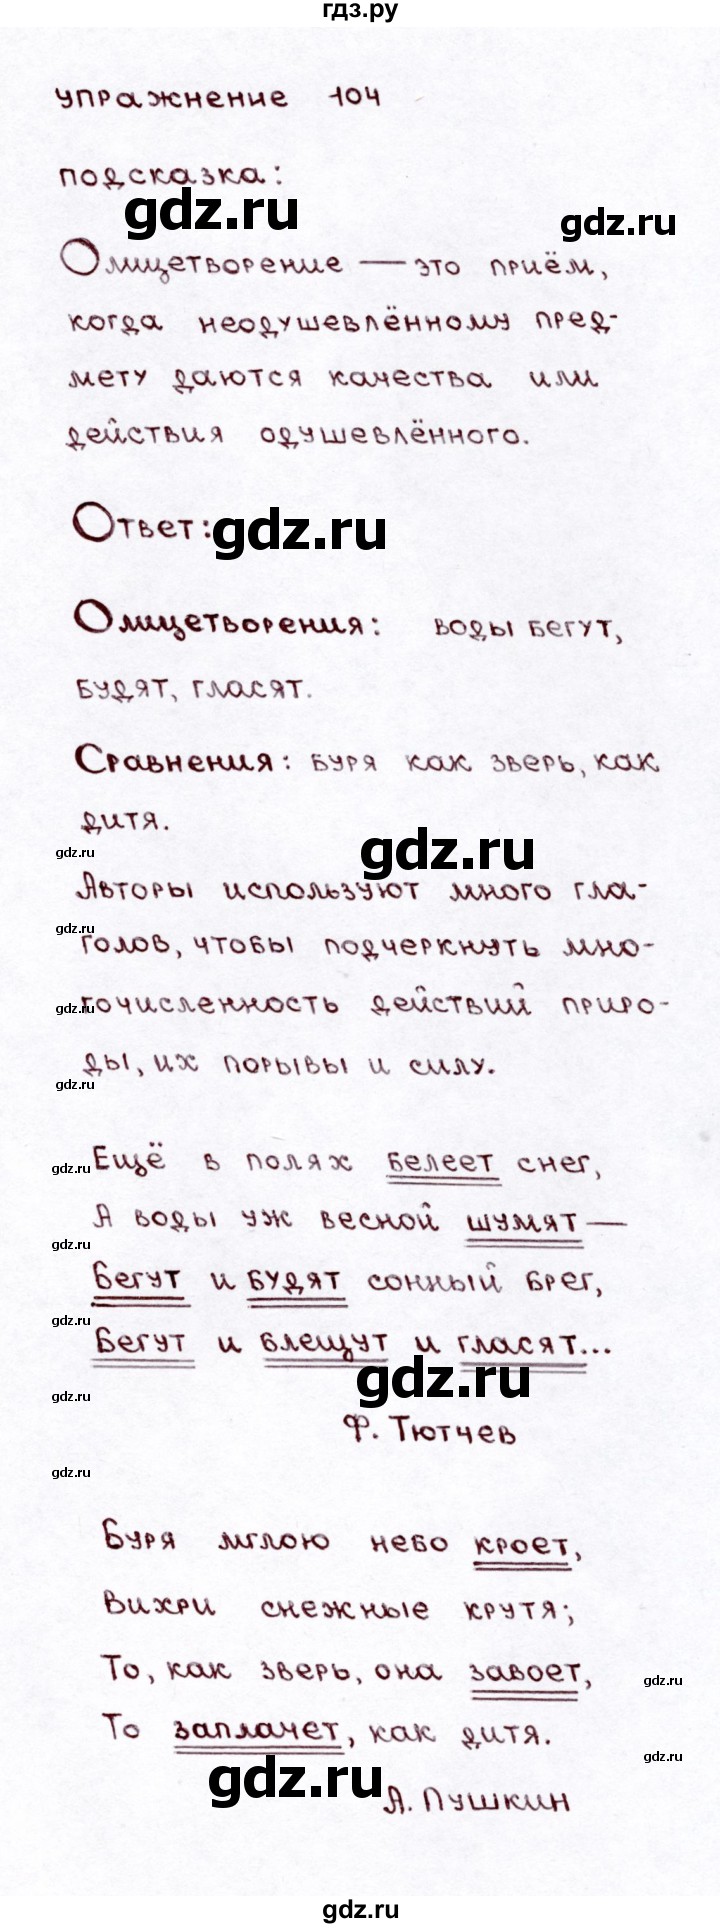 гдз.ру
упражнение 104
подсказка:
gdz.ru
gdz.ru
Олицетворение — это приём,
когда неодушевлённому пред-
мету даются качества или
действия одушевлённого.
Ответ:
gdz.ru
Олицетворения: воды бегут,
будят, гласят.
Сравнения: буря как зверь, как
дитя.
gdz.ru
gdz.ru
Авторы используют много гла-
gdz.ru
голов, чтобы подчеркнуть мно-
gdz.ru
гочисленность действий приро-
ды, их порывы и силу.
gdz.ru
Ещё в полях белеет снег,
gdz.ru
А воды уж весной шумят —
gdz.ru
Бегут и будят сонный брег,
gdz.ru
Бегут и блещут и гласят...
gdz.ru
gdz.ru
Ф. Тютчев
gdz.ru
Буря мглою небо кроет,
Вихри снежные крутя;
То, как зверь, она завоет,
gdz.ru
То заплачет, как дитя.
gdz.ru
gdz.ru
А. Пушкин
gdz.ru